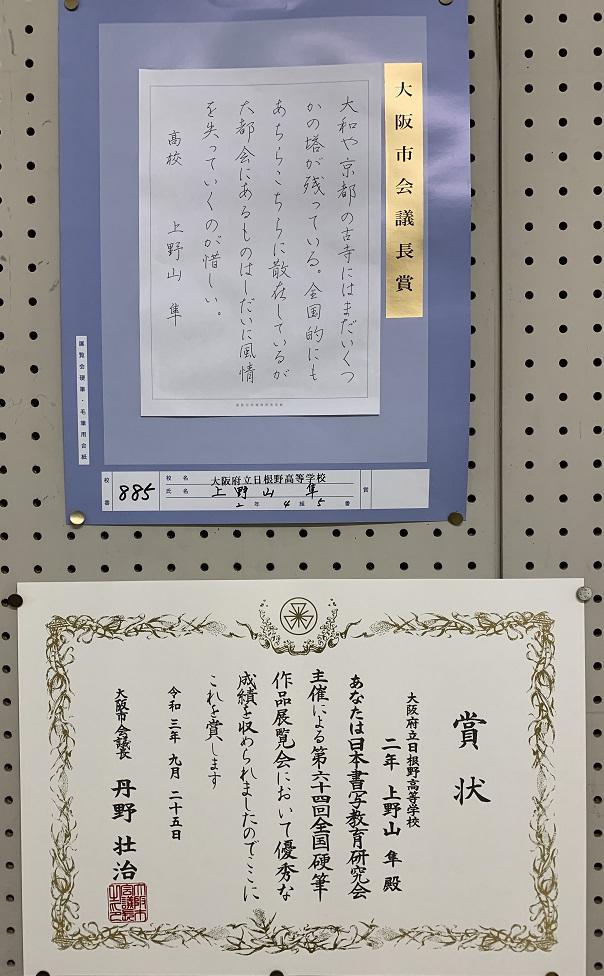 大阪市会議長賞
大和や京都の古寺にはまだいくつ
かの塔が残っている。全国的にも
あちらこちらに散在しているが
大都会にあるものはしだいに風情
を失っていくのが惜しい。
高校 上野山 隼
展覧会硬筆・毛筆用台紙
校番 885
校名 大阪府立日根野高等学校
氏名 上野山 隼
2年 4組 5番
賞
賞状
大阪府立日根野高等学校
二年 上野山 隼 殿
あなたは日本書写教育研究会
主催による第六十四回全国硬筆
作品展覧会において優秀な
成績を収められましたのでここに
これを賞します
令和三年 九月 二十五日
大阪市会議長 丹野 壮治